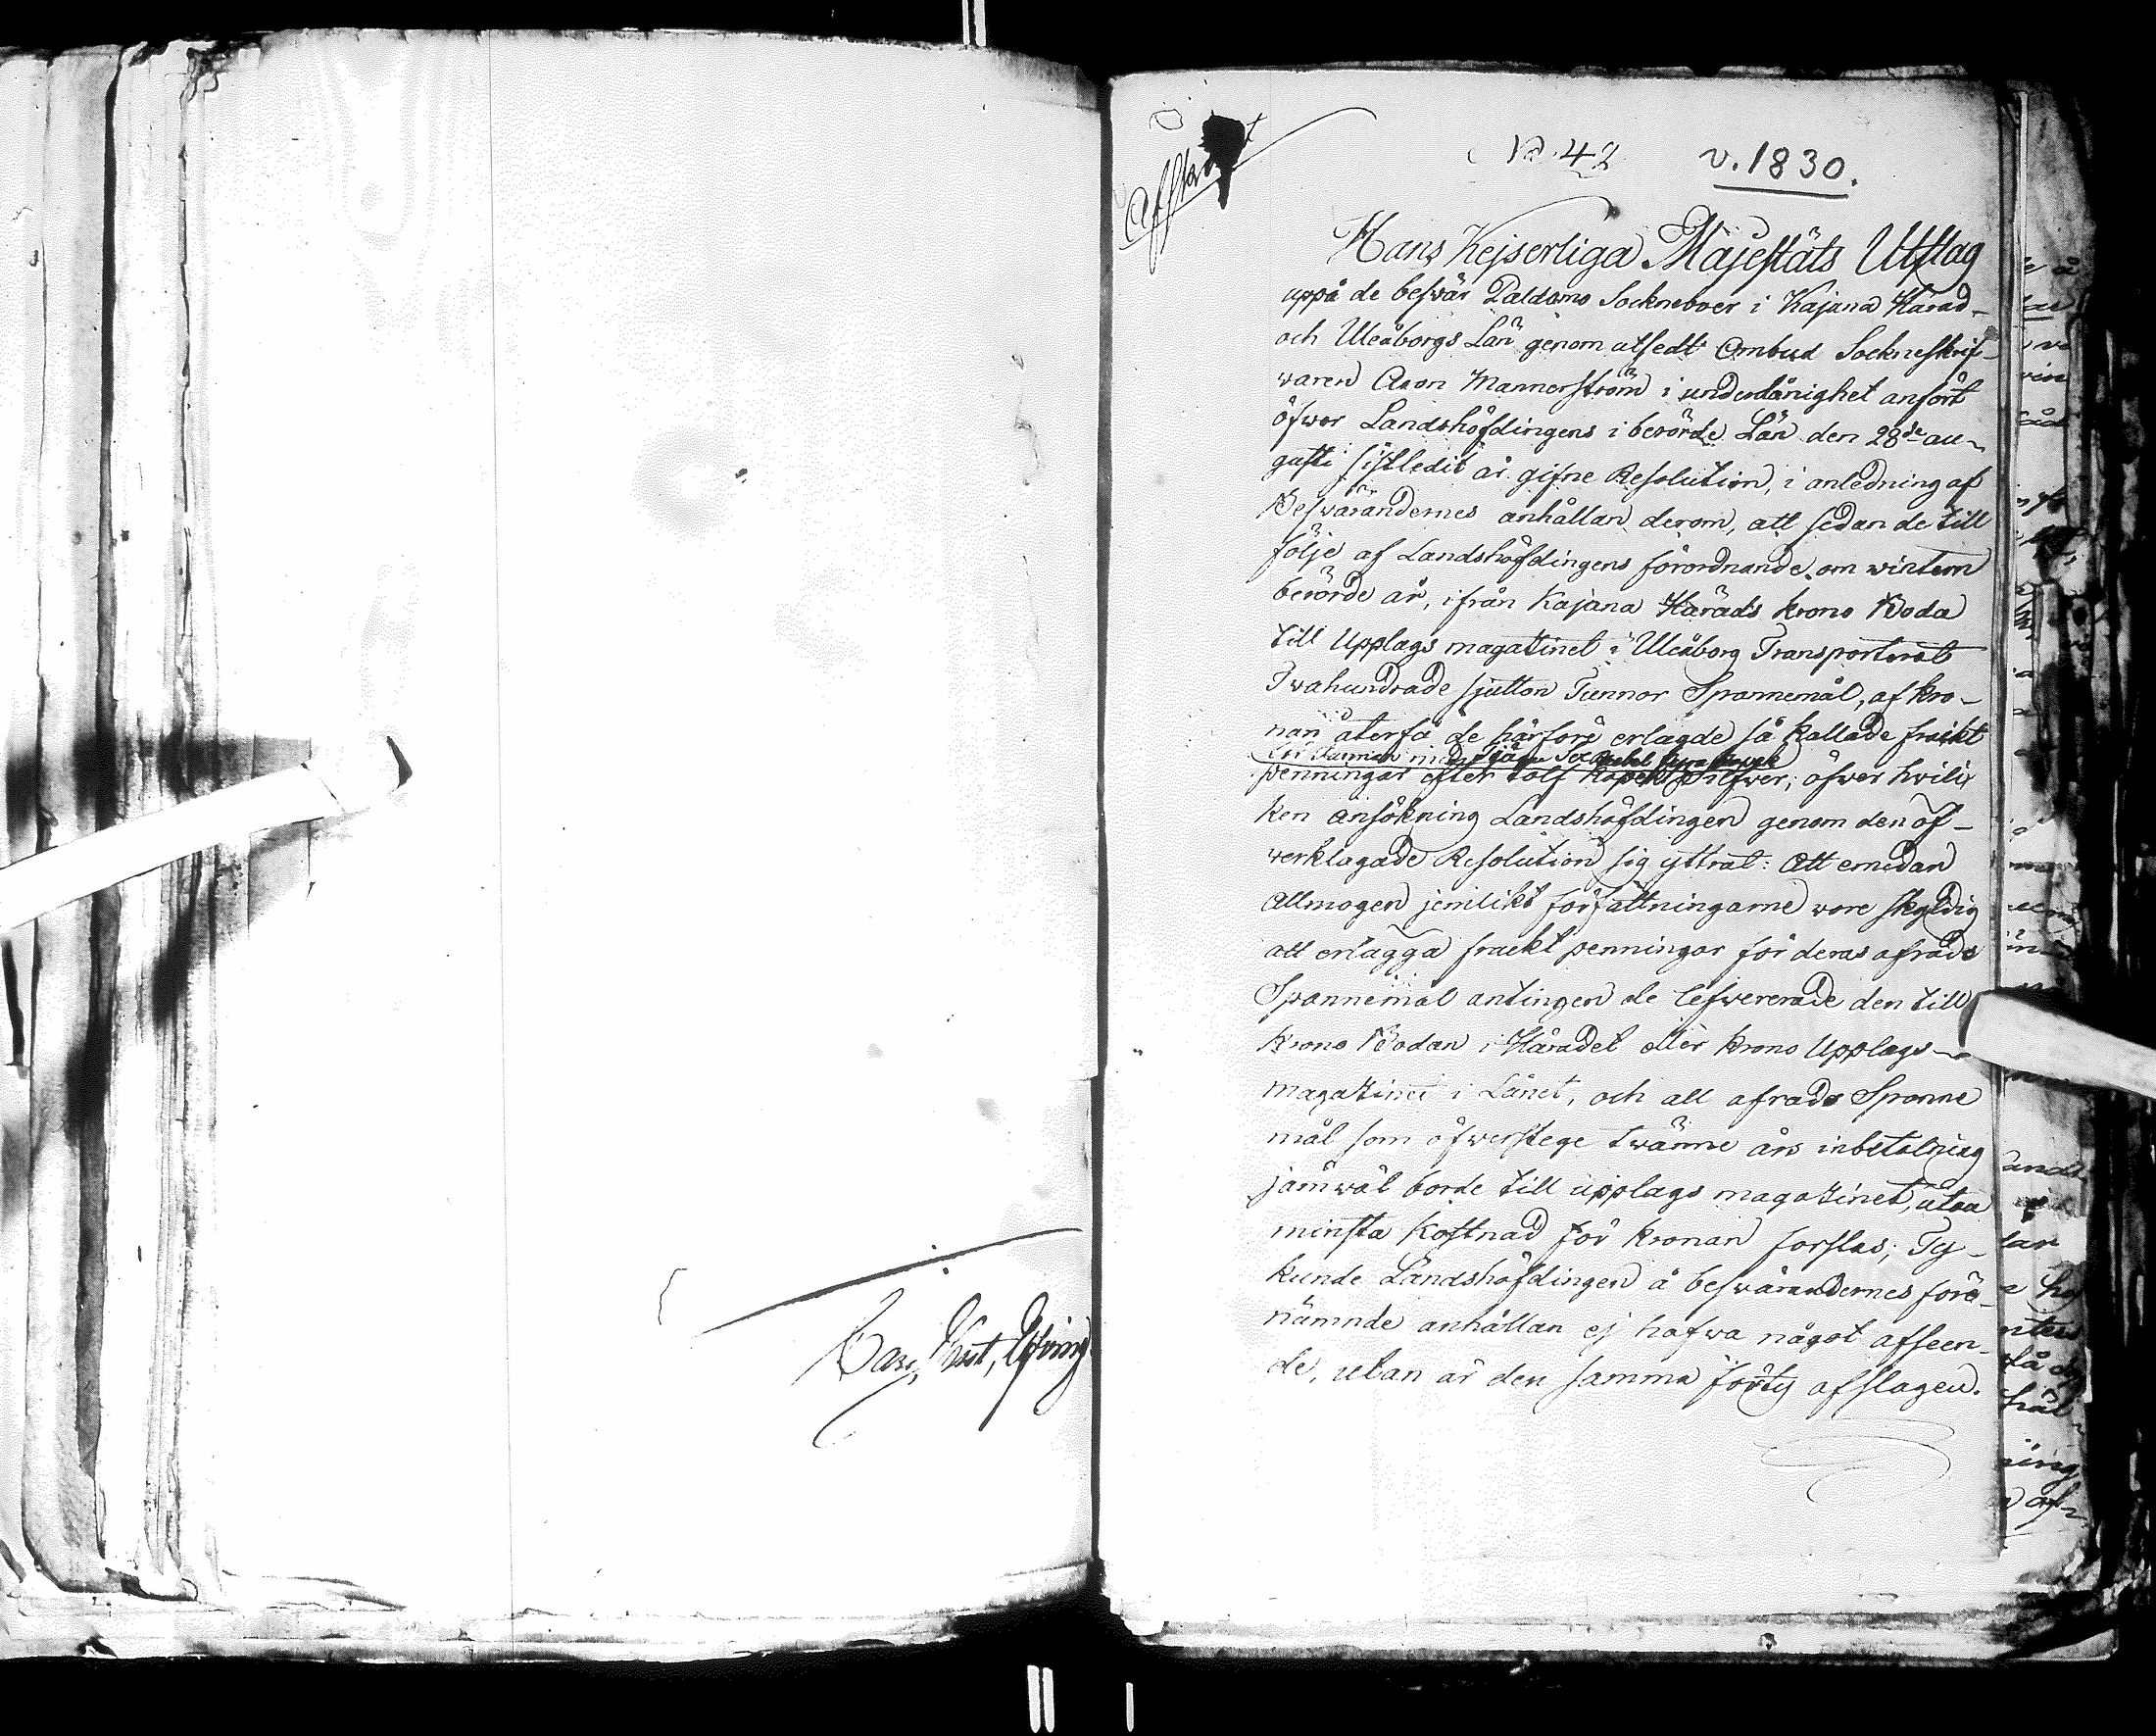 No. 42 v. 1830.
Afskrift
Hans Kejserliga Majestäts Utslag
uppå de besvär Paldamo Sockneboer i Kajana Härad
och Uleåborgs Län genom utsedt Ombud Sockneskrif-
waren Aron Mannerström i underdånighet anfört
öfwer Landshöfdingens i berörde Län den 28de au-
gusti sistledit år gifne Resolution, i anledning af
Beswärandernes anhållan derom, att sedan de till
följe af Landshöfdingens förordnande om wintern
berörde år, ifrån Kajana Härads Krono Boda
till Upplags magatinet i Uleåborg Transporterat
Twahundrade sjutton Tunnor Spannemål, af Kro-
nan återfå de härföre erlagde så kallade frakt
penningar efter tolf Kopek Silfwer; öfwer hwil-
ken ansökning Landshöfdingen genom den öf-
werklagade Resolution sig yttrat: Att emedan
Allmogen jemlikt författningarne wore skyldig
att erlägga frackt penningar för deras afrads
Spannemål antingen de lefwererade den till
Krono Bodan i Häradet eller Krono Upplags-
magatinet i Länet, och all afrads Spanne
mål som öfwerstege twänne års inbetalning
jämwäl borde till upplags magatinet, utan
minsta kostnad för Kronan forslas; Ty
kunde Landshöfdingen å beswärandernes före-
nämnde anhållan ej hafwa något afseen-
de, utan är den samma förty afslagen.